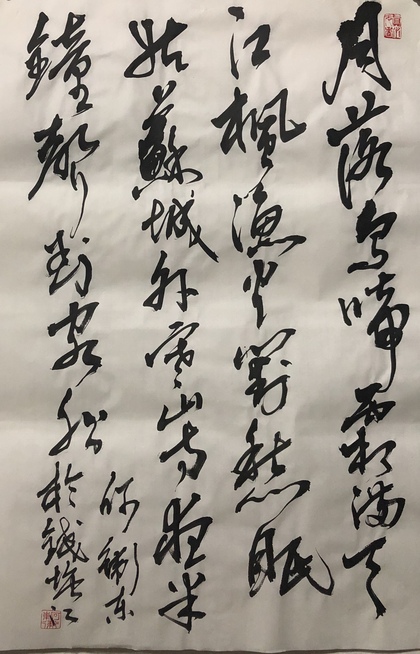 月落烏啼霜滿天
江楓漁火對愁眠
姑蘇城外寒山寺夜半
鐘聲到客船
東
於錢塘江